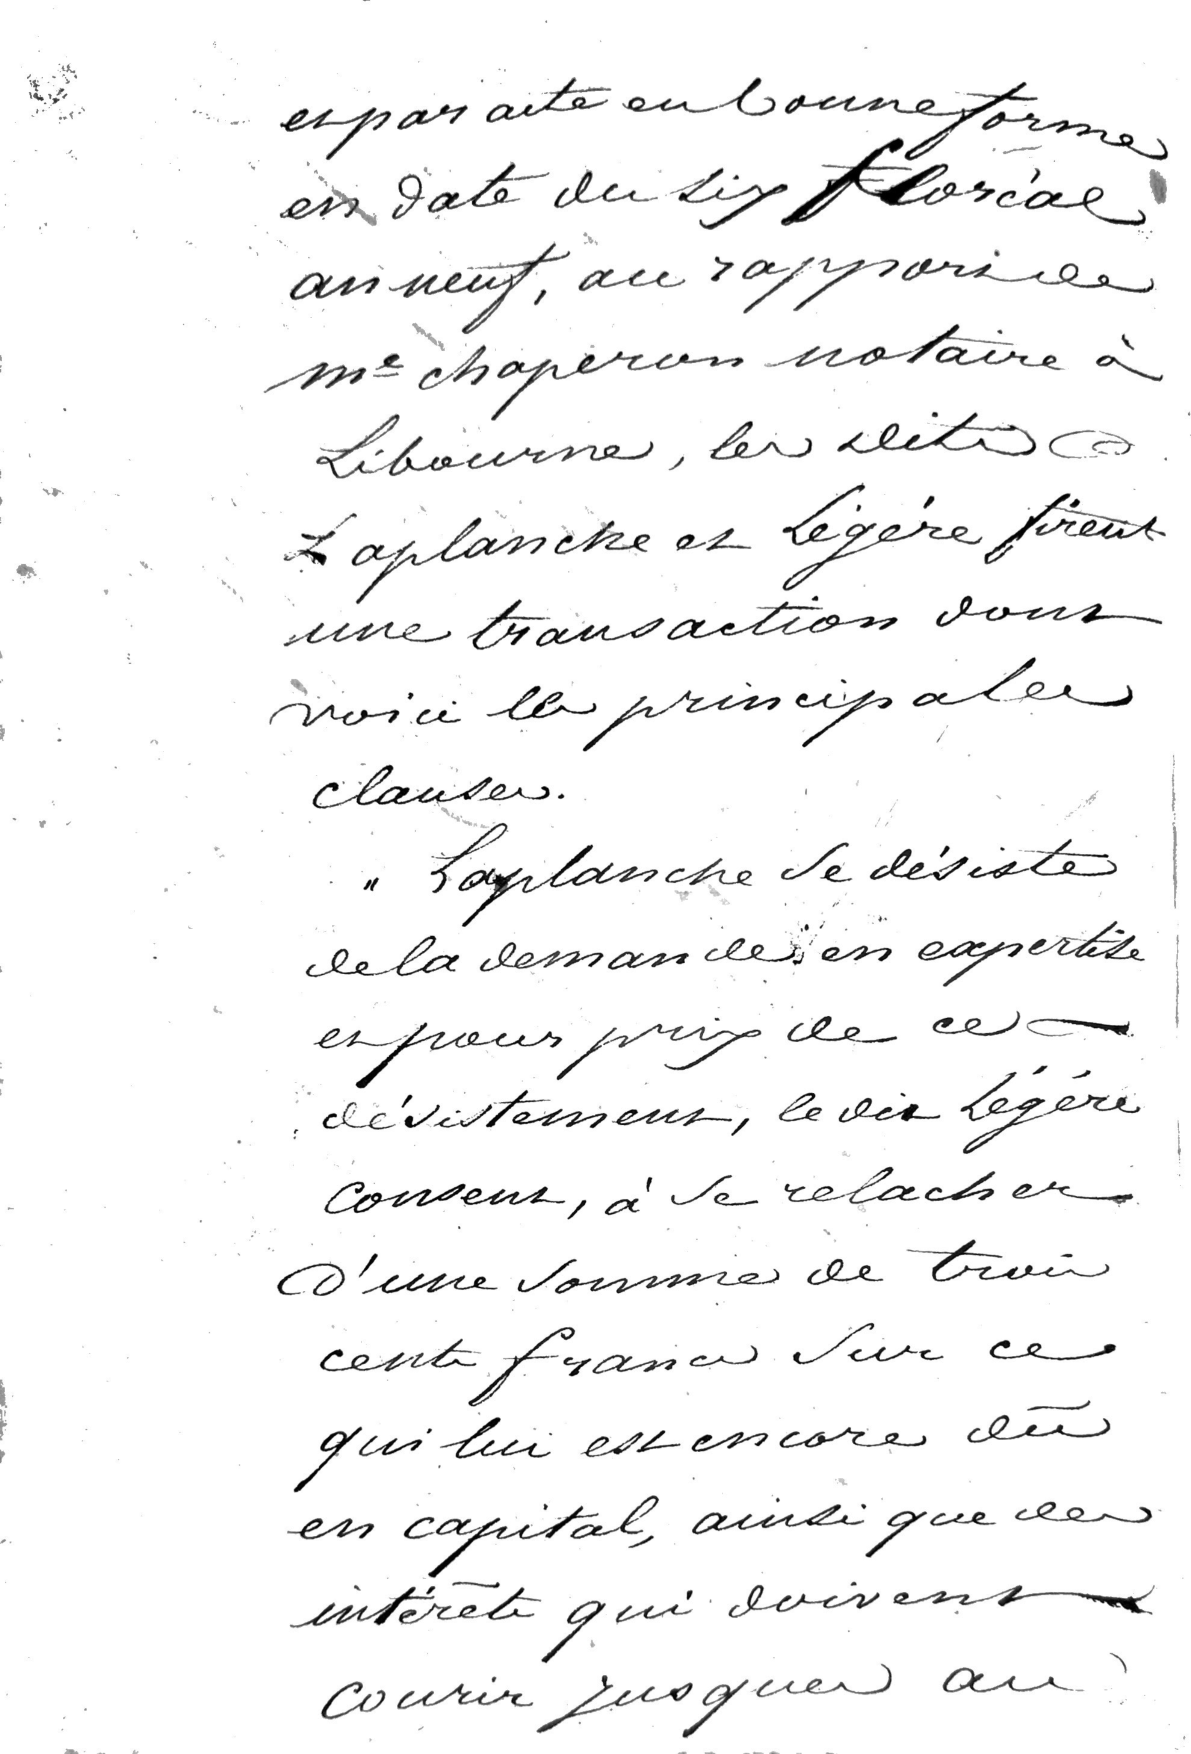 et par acte en bonne forme
en date du six floréal
an neuf, au rapport de
Me chaperon notaire à
Libourne, les dits
Laplanche et Légére firent
une transaction dont
voici les principales
clauses.
" Laplanche se désiste
de la demande en expertise
et pour prix de ce
désistement, le dit Légére
consent, à se relacher
d'une somme de trois
cents francs sur ce
qui lui est encore dû
en capital, ainsi que des
intérêts qui doivent
courir jusques au